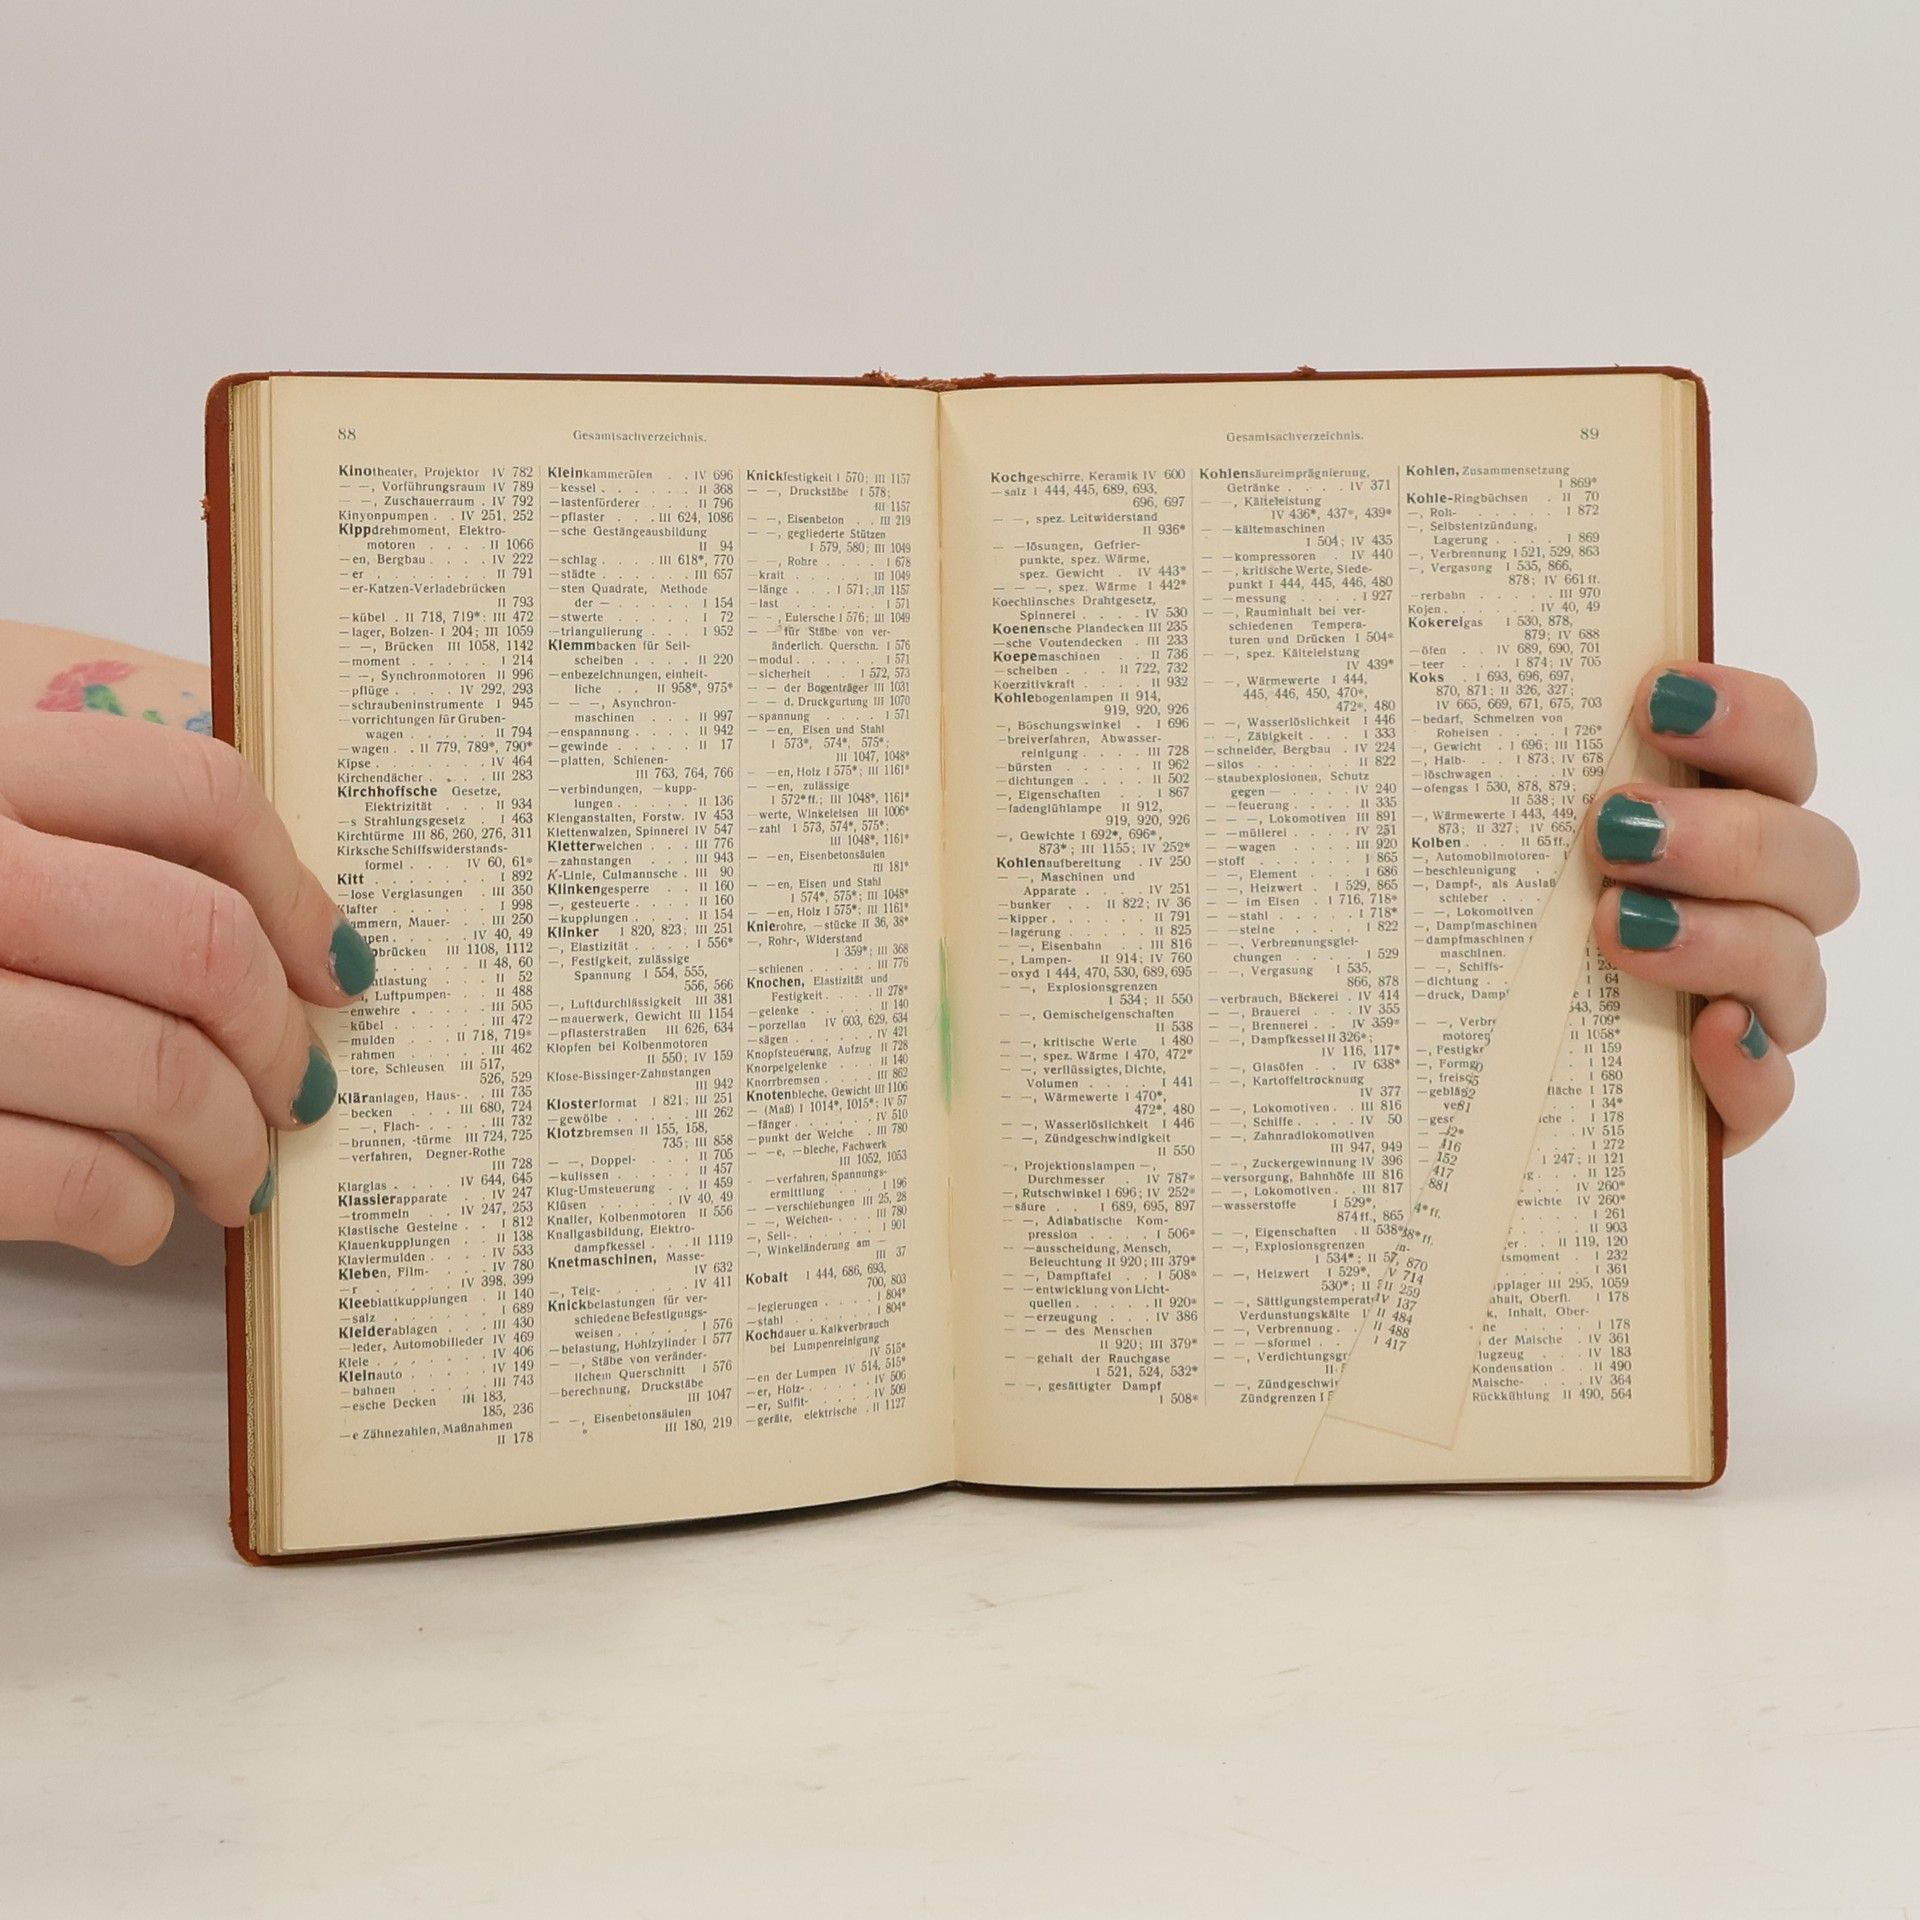 88
Gesamtsachverzeichnis.
Kinotheater, Projektor IV 782
— —, Vorführungsraum IV 789
— —, Zuschauerraum . IV 792
Kinyonpumpen . . IV 251, 252
Kippdrehmoment, Elektro-
motoren . . . . II 1066
—en, Bergbau . . . . IV 222
—er . . . . . . . . II 791
—er-Katzen-Verladebrücken
II 793
—kübel . II 718, 719*; III 472
—lager, Bolzen- I 204; III 1059
— —, Brücken III 1058, 1142
—moment . . . . . I 214
— —, Synchronmotoren II 996
—pflüge . . . . IV 292, 293
—schraubeninstrumente I 945
—vorrichtungen für Gruben-
wagen . . . . . II 794
—wagen . . II 779, 789*, 790*
Kipse . . . . . . . IV 464
Kirchendächer . . . . III 283
Kirchhoffsche Gesetze,
Elektrizität . . . . II 934
—s Strahlungsgesetz . I 463
Kirchtürme III 86, 260, 276, 311
Kirksche Schiffswiderstands-
formel . . . . IV 60, 61*
Kitt . . . . . . . . I 892
—lose Verglasungen . III 350
Klafter . . . . . . I 998
ammern, Mauer- . . III 250
. . . IV 40, 49
brücken III 1108, 1112
. . . . II 48, 60
ntlastung . . . . II 52
, Luftpumpen- . . II 488
—enwehre . . . . . III 505
—kübel . . . . . . III 472
—mulden . . . II 718, 719*
—rahmen . . . . . III 462
—tore, Schleusen III 517,
526, 529
Kläranlagen, Haus- . . III 735
—becken . . . III 680, 724
— —, Flach- . . . . III 732
—brunnen, -türme III 724, 725
—verfahren, Degner-Rothe
III 728
Klarglas . . . . IV 644, 645
Klassierapparate . . IV 247
—trommeln . . . IV 247, 253
Klastische Gesteine . . I 812
Klauenkupplungen . . II 138
Klaviermulden . . . . IV 533
Kleben, Film- . . . . IV 780
—r . . . . . . IV 398, 399
Kleeblattkupplungen . II 140
—salz . . . . . . . I 689
Kleiderablagen . . . III 430
—leder, Automobilleder IV 469
Kleie . . . . . . . IV 406
Kleinauto . . . . . . IV 149
—bahnen . . . . . III 743
—esche Decken III 183,
185, 236
—e Zähnezahlen, Maßnahmen
II 178
Kleinkammeröfen . . IV 696
—kessel . . . . . . II 368
—lastenförderer . . . II 796
—pflaster . . . III 624, 1086
—sche Gestängeausbildung
II 94
—schlag . . . . III 618*, 770
—städte . . . . . . III 657
—sten Quadrate, Methode
der — . . . . . . I 154
—stwerte . . . . . . I 72
—triangulierung . . . I 952
Klemmbacken für Seil-
scheiben . . . . . II 220
—enbezeichnungen, einheit-
liche . . . II 958*, 975*
— — —, Asynchron-
maschinen . . . . II 997
—enspannung . . . . II 942
—gewinde . . . . . II 17
—platten, Schienen-
III 763, 764, 766
—verbindungen, —kupp-
lungen . . . . . . II 136
Klenganstalten, Forstw. IV 453
Klettenwalzen, Spinnerei IV 547
Kletterweichen . . . III 776
—zahnstangen . . . III 943
K-Linie, Culmannsche . III 90
Klinkengesperre . . . II 160
—, gesteuerte . . . . II 160
—kupplungen . . . . II 154
Klinker I 820, 823; III 251
—, Elastizität . . . . I 556*
—, Festigkeit, zulässige
Spannung I 554, 555,
556, 566
—, Luftdurchlässigkeit III 381
—mauerwerk, Gewicht III 1154
—pflasterstraßen III 626, 634
Klopfen bei Kolbenmotoren
II 550; IV 159
Klose-Bissinger-Zahnstangen
III 942
Klosterformat I 821; III 251
—gewölbe . . . . . III 262
Klotzbremsen II 155, 158,
735; III 858
— —, Doppel- . . . . II 705
—kulissen . . . . . . II 457
Klug-Umsteuerung . . II 459
Klüsen . . . . . . IV 40, 49
Knaller, Kolbenmotoren II 556
Knallgasbildung, Elektro-
dampfkessel . . . II 1119
Knetmaschinen, Masse-
IV 632
—, Teig- . . . . . . IV 411
Knickbelastungen für ver-
schiedene Befestigungs-
weisen . . . . . . I 576
—belastung, Hohlzylinder I 577
— —, Stäbe von veränder-
lichem Querschnitt I 576
—berechnung, Druckstäbe
III 1047
— —, Eisenbetonsäulen
III 180, 219
Knickfestigkeit I 570; III 1157
— —, Druckstäbe I 578;
III 1157
— —, Eisenbeton . . III 219
— —, gegliederte Stützen
I 579, 580; III 1049
— —, Rohre . . . . . I 678
—kraft . . . . . . III 1049
—länge . . . I 571; III 1157
—last . . . . . . . . I 571
— —, Eulersche I 576; III 1049
— —für Stäbe von ver-
änderlich. Querschn. I 576
—modul . . . . . . . I 571
—sicherheit . . . I 572, 573
— — der Bogenträger III 1031
— — d. Druckgurtung III 1070
—spannung . . . . . I 571
— —en, Eisen und Stahl
I 573*, 574*, 575*;
III 1047, 1048*
— —en, Holz I 575*; III 1161*
— —en, zulässige
I 572*ff.; III 1048*, 1161*
—werte, Winkeleisen III 1006*
—zahl I 573, 574*, 575*;
III 1048*, 1161*
— —en, Eisenbetonsäulen
III 181*
— —en, Eisen und Stahl
I 574*, 575*; III 1048*
— —en, Holz I 575*; III 1161*
Knierohre, —stücke II 36, 38*
—, Rohr-, Widerstand
I 359*; III 368
—schienen . . . . . III 776
Knochen, Elastizität und
Festigkeit . . . . II 278*
—gelenke . . . . . . II 140
—porzellan IV 603, 629, 634
—sägen . . . . . . IV 421
Knopfsteuerung, Aufzug II 728
Knorpelgelenke . . . II 140
Knorrbremsen . . . . III 862
Knotenbleche, Gewicht III 1106
— (Maß) I 1014*, 1015*; IV 57
—fänger . . . . . . IV 510
—punkt der Weiche . III 780
— —e, —bleche, Fachwerk
III 1052, 1053
— —verfahren, Spannungs-
ermittlung . . . . I 196
— —verschiebungen III 25, 28
— —, Weichen- . . . III 780
—, Seil- . . . . . . I 901
—, Winkeländerung am —
III 37
Kobalt I 444, 686, 693,
700, 803
—legierungen . . . . I 804*
—stahl . . . . . . . I 804*
Kochdauer u. Kalkverbrauch
bei Lumpenreinigung
IV 515*
—en der Lumpen IV 514, 515*
—er, Holz- . . . . . IV 506
—er, Sulfit- . . . . . IV 509
—geräte, elektrische . II 1127
Gesamtsachverzeichnis.
89
Kochgeschirre, Keramik IV 600
—salz I 444, 445, 689, 693,
696, 697
— —, spez. Leitwiderstand
II 936*
— —lösungen, Gefrier-
punkte, spez. Wärme,
spez. Gewicht . IV 443*
— — —, spez. Wärme I 442*
Koechlinsches Drahtgesetz,
Spinnerei . . . . . IV 530
Koenensche Plandecken III 235
—sche Voutendecken . III 233
Koepemaschinen . . II 736
—scheiben . . . II 722, 732
Koerzitivkraft . . . . II 932
Kohlebogenlampen II 914,
919, 920, 926
—, Böschungswinkel . I 696
—breiverfahren, Abwasser-
reinigung . . . . . III 728
—bürsten . . . . . II 962
—dichtungen . . . . II 502
—, Eigenschaften . . . I 867
—fadenglühlampe II 912,
919, 920, 926
—, Gewichte I 692*, 696*,
873*; III 1155; IV 252*
Kohlenaufbereitung . IV 250
— —, Maschinen und
Apparate . . . . . IV 251
—bunker . . II 822; IV 36
—kipper . . . . . . II 791
—lagerung . . . . . II 825
— —, Eisenbahn . . . III 816
—, Lampen- II 914; IV 760
—oxyd I 444, 470, 530, 689, 695
— —, Explosionsgrenzen
I 534; II 550
— —, Gemischeigenschaften
II 538
— —, kritische Werte I 480
— —, spez. Wärme I 470, 472*
— —, verflüssigtes, Dichte,
Volumen . . . . . I 441
— —, Wärmewerte I 470*,
472*, 480
— —, Wasserlöslichkeit I 446
— —, Zündgeschwindigkeit
II 550
—, Projektionslampen —,
Durchmesser . . IV 787*
—, Rutschwinkel I 696; IV 252*
—säure . . . I 689, 695, 897
— —, Adiabatische Kom-
pression . . . . . I 506*
— —ausscheidung, Mensch,
Beleuchtung II 920; III 379*
— —, Dampftafel . . I 508*
— —entwicklung von Licht-
quellen . . . . . II 920*
— —erzeugung . . . IV 386
— — — des Menschen
II 920; III 379*
— —gehalt der Rauchgase
I 521, 524, 532*
— —, gesättigter Dampf
I 508*
Kohlensäureimprägnierung,
Getränke . . . . IV 371
— —, Kälteleistung
IV 436*, 437*, 439*
— —kältemaschinen
I 504; IV 435
— —kompressoren . IV 440
— —, kritische Werte, Siede-
punkt I 444, 445, 446, 480
— —messung . . . . I 927
— —, Rauminhalt bei ver-
schiedenen Tempera-
turen und Drücken I 504*
— —, spez. Kälteleistung
IV 439*
— —, Wärmewerte I 444,
445, 446, 450, 470*,
472*, 480
— —, Wasserlöslichkeit I 446
— —, Zähigkeit . . . I 333
—schneider, Bergbau . IV 224
—silos . . . . . . . II 822
—staubexplosionen, Schutz
gegen — . . . . . IV 240
— —feuerung . . . . II 335
— — —, Lokomotiven III 891
— —müllerei . . . . IV 251
— —wagen . . . . . III 920
—stoff . . . . . . . I 865
— —, Element . . . . I 686
— —, Heizwert . I 529, 865
— — im Eisen . I 716, 718*
— —stahl . . . . . I 718*
— —steine . . . . . I 822
— —, Verbrennungsglei-
chungen . . . . . I 529
— —, Vergasung I 535,
866, 878
—verbrauch, Bäckerei . IV 414
— —, Brauerei . . . IV 355
— —, Brennerei . . IV 359*
— —, Dampfkessel II 326*;
IV 116, 117*
— —, Glasöfen . . . IV 638*
— —, Kartoffeltrocknung
IV 377
— —, Lokomotiven . . III 816
— —, Schiffe . . . . IV 50
— —, Zahnradlokomotiven
III 947, 949
— —, Zuckergewinnung IV 396
—versorgung, Bahnhöfe III 816
— —, Lokomotiven . . III 817
—wasserstoffe I 529*,
874 ff., 865
— —, Eigenschaften . . II 538*
— —, Explosionsgrenzen
I 534*; II
— —, Heizwert I 529*,
530*; II
— —, Sättigungstemperat
Verdunstungskälte
— —, Verbrennung . .
— —sformel . . .
— —, Verdichtungsgr
— —, Zündgeschwi
Zündgrenzen
Kohlen, Zusammensetzung
I 869*
Kohle-Ringbüchsen . II 70
—, Roh- . . . . . . I 872
—, Selbstentzündung,
Lagerung . . . . . I 869
—, Verbrennung I 521, 529, 863
—, Vergasung I 535, 866,
878; IV 661 ff.
—rerbahn . . . . . III 970
Kojen . . . . . . IV 40, 49
Kokereigas I 530, 878,
879; IV 688
—öfen . . IV 689, 690, 701
—teer . . . I 874; IV 705
Koks . I 693, 696, 697,
870, 871; II 326, 327;
IV 665, 669, 671, 675, 703
—bedarf, Schmelzen von
Roheisen . . . . I 726*
—, Gewicht . I 696; III 1155
—, Halb- . . I 873; IV 678
—löschwagen . . . IV 699
—ofengas I 530, 878, 879;
II 538; IV
—, Wärmewerte I 443, 449,
873; II 327; IV 665,
Kolben . . . II 65 ff.,
—, Automobilmotoren-
—beschleunigung .
—, Dampf-, als Auslaß
schieber . . .
— —, Lokomotiven
—dampfmaschinen
— —, Dampfmaschinen
maschin.
— —, Schiffs-
—dichtung . . .
I 64
—druck, Dampf
I 178
543, 569
— —, Verbre
I 709*
motoren
II 1058*
—, Festigk
II 159
—, Form
I 124
—, freis
I 680
—gebläs
fläche I 178
I 34*
—gesc
che I 178
IV 515
I 272
I 247; II 121
II 125
IV 260*
ewichte IV 260*
I 261
II 903
II 119, 120
tsmoment . I 232
I 361
ipplager III 295, 1059
nhalt, Oberfl. I 178
k, Inhalt, Ober-
I 178
der Maische . IV 361
lugzeug . . . IV 183
Kondensation . . II 490
Maische- . . . IV 364
Rückkühlung II 490, 564
416
152
417
881
4*ff.
38*ff.
870
IV 714
II 259
IV 137
II 484
II 488
I 417